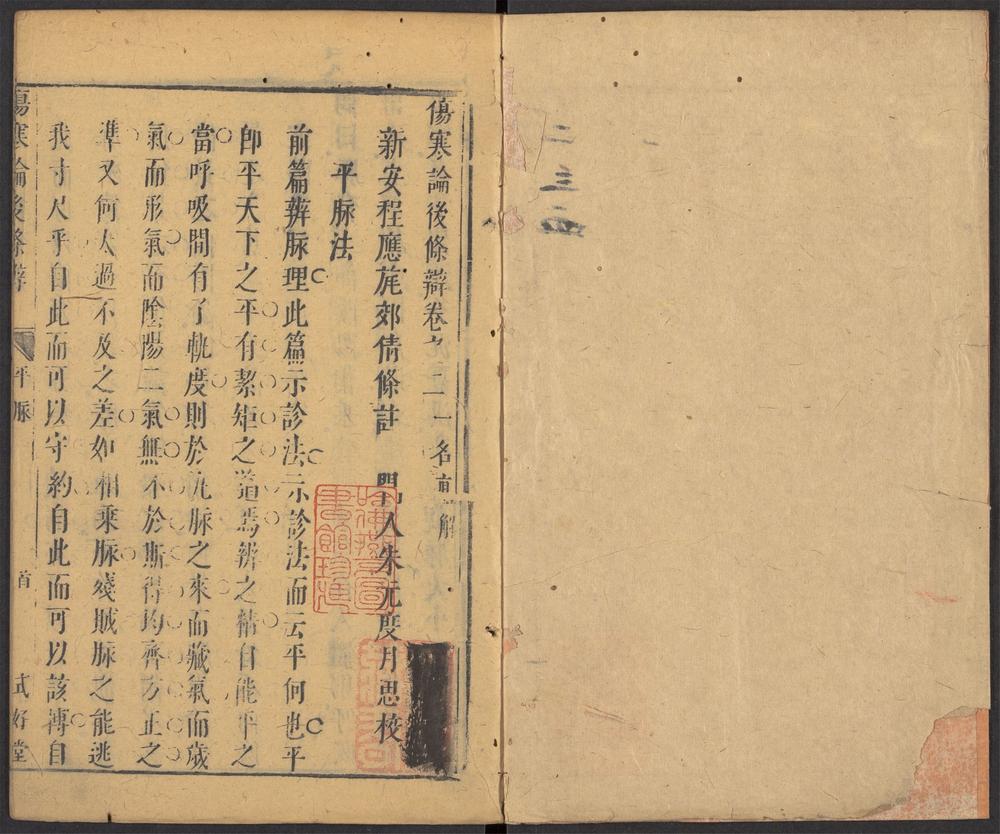 二三四
傷寒論後條辯卷之二 一名直解
新安程應旄郊倩條註 門人朱元度月思校
平脉法
前篇辨脉理此篇示診法示診法而云平何也平
卽平天下之平有絜矩之道焉辨之精自能平之
當呼吸間有了軌度則於凢脉之來而藏氣而歲
氣而形氣而陰陽二氣無不於斯得均齊方正之
準又何太過不及之差如相乘脉殘賊脉之能逃
我寸尺乎自此而可以守約自此而可以該博自
傷寒論後條辯 平脉 首 式好堂
哈佛燕京圖書館珍藏